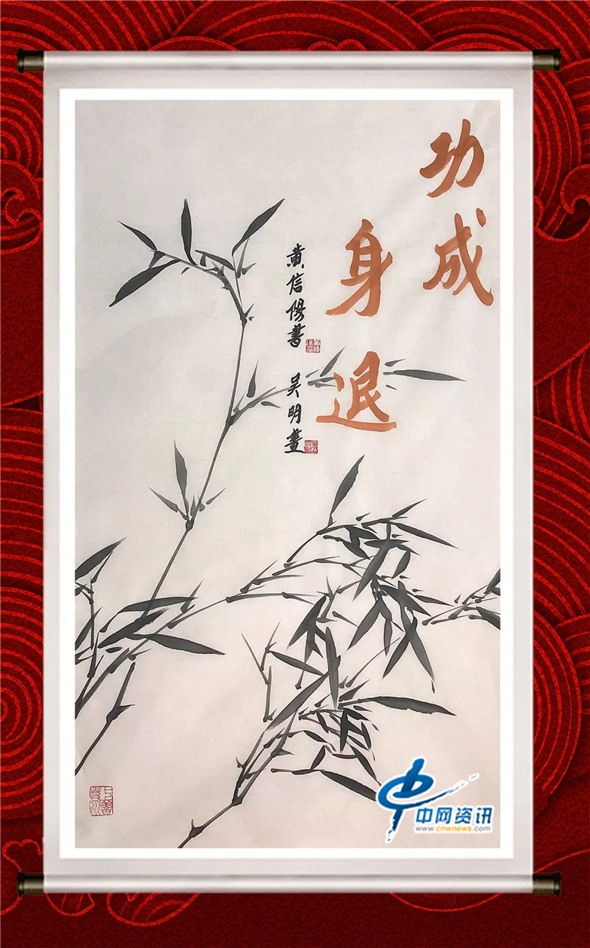 功成
身退
黄信陽書
吴明畫
中网资讯
www.cnwnews.com